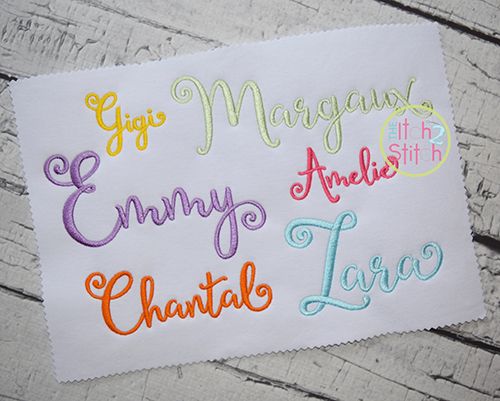 Gigi Margaux
THE Itch 2 Stitch
Amelie
Emmy
Zara
Chantal